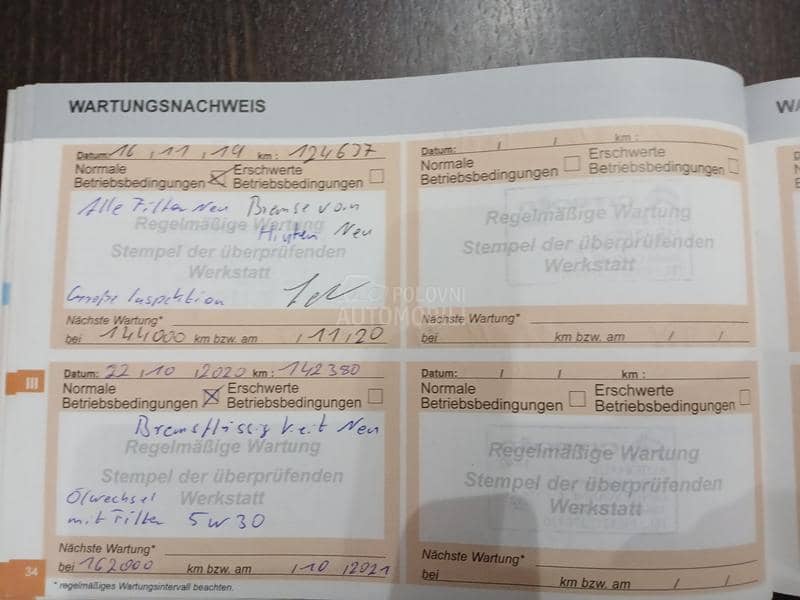 WARTUNGSNACHWEIS
Datum: 16 , 11 , 19 km : 124637
Normale Betriebsbedingungen
Erschwerte Betriebsbedingungen
Alle Filter Neu Bremse vorn
Hinten Neu
Regelmäßige Wartung
Stempel der überprüfenden
Werkstatt
Große Inspektion
Nächste Wartung*
bei 144000 km bzw. am , 11 , 20
Datum: 22 , 10 , 2020 km : 142380
Normale Betriebsbedingungen
Erschwerte Betriebsbedingungen
Bremsflüssigkeit Neu
Regelmäßige Wartung
Stempel der überprüfenden
Werkstatt
Ölwechsel
mit Filter 5w30
Nächste Wartung*
bei 162000 km bzw. am , 10 , 2021
* regelmäßiges Wartungsintervall beachten.
34
III
Datum: / / km :
Normale Betriebsbedingungen
Erschwerte Betriebsbedingungen
Regelmäßige Wartung
Stempel der überprüfenden
Werkstatt
Nächste Wartung*
bei km bzw. am / /
Datum: / / km :
Normale Betriebsbedingungen
Erschwerte Betriebsbedingungen
Regelmäßige Wartung
Stempel der überprüfenden
Werkstatt
Nächste Wartung*
bei km bzw. am / /
POLOVNI
AUTOMOBILI